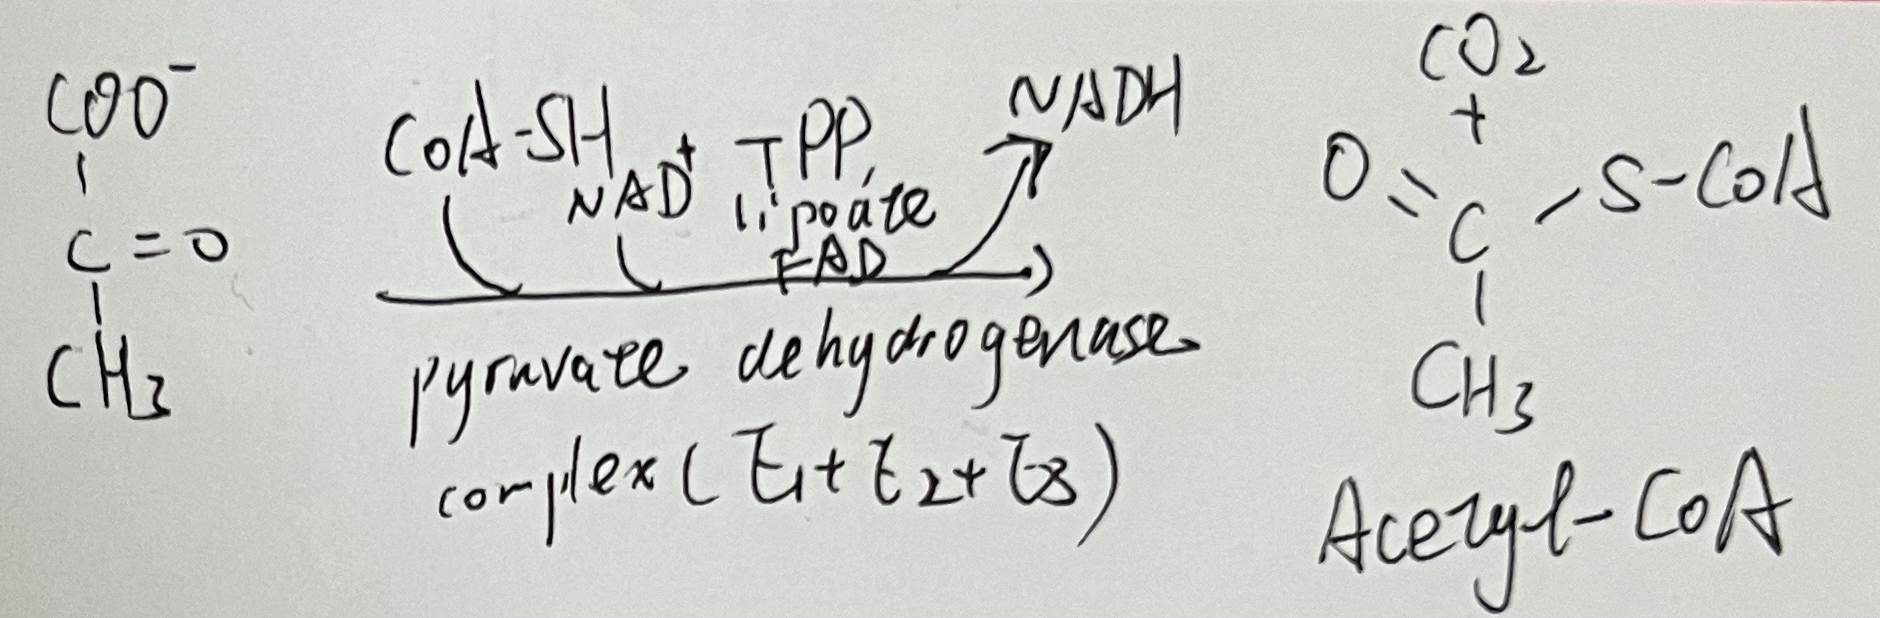 COO⁻
C=O
CH3
CoA-SH
NAD⁺
TPP,
lipoate
FAD
NADH
pyruvate dehydrogenase
complex (E1+E2+E3)
CO2
+
O=C-S-CoA
CH3
Acetyl-CoA